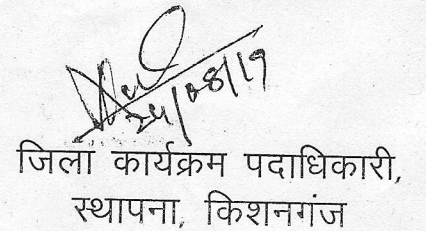 24/08/19
जिला कार्यक्रम पदाधिकारी,
स्थापना, किशनगंज